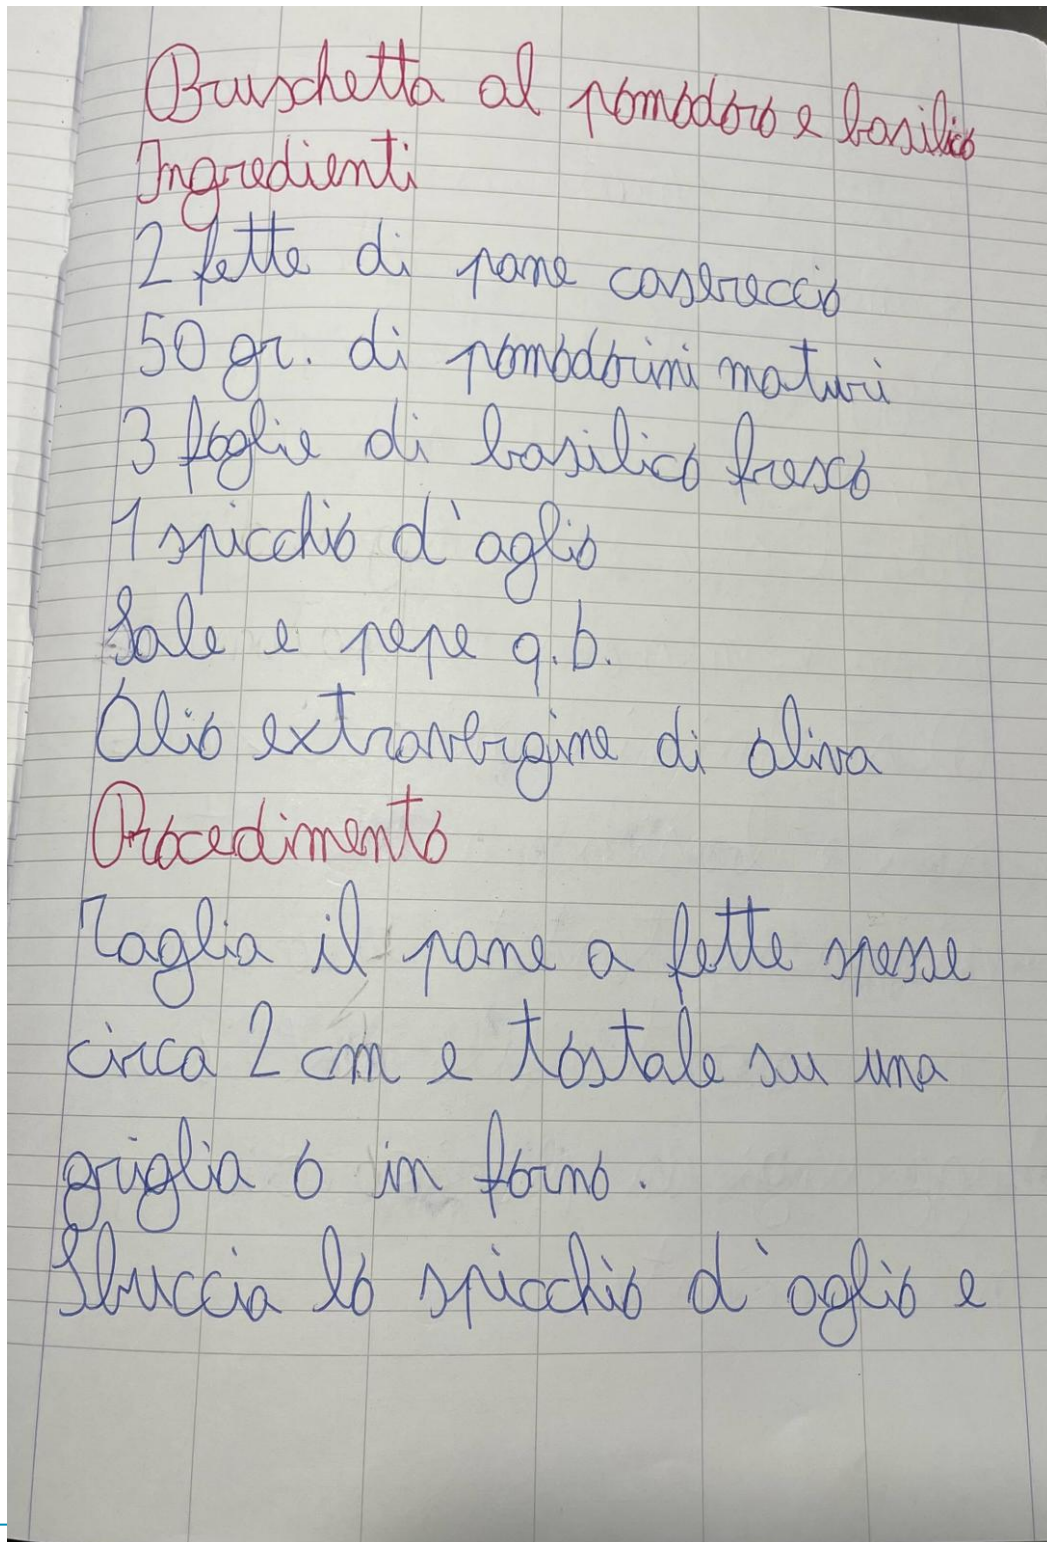 Bruschetta al pomodoro e basilico
Ingredienti
2 fette di pane casereccio
50 gr. di pomodorini maturi
3 foglie di basilico fresco
1 spicchio d'aglio
Sale e pepe q.b.
Olio extravergine di oliva
Procedimento
Taglia il pane a fette spesse
circa 2 cm e tostale su una
griglia o in forno.
Sbuccia lo spicchio d'aglio e